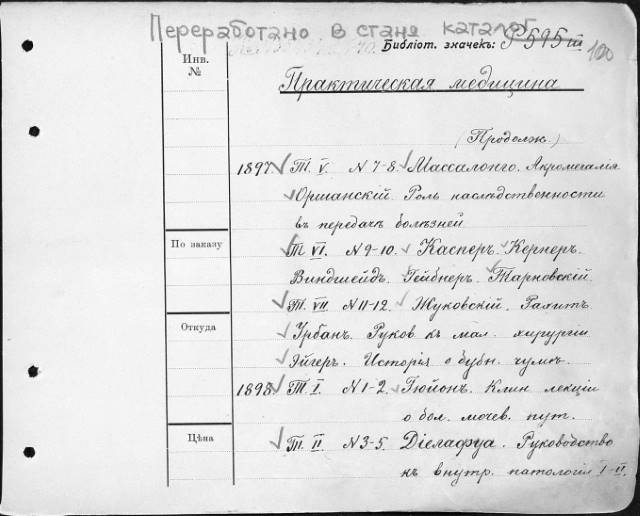 Переработано в стан. каталог
Библіот. значекъ: P 595 III 100
Инв. №
Практическая медицина
(Продолж.)
1897 Т. V. N 7-8. Массалонго. Акромегалія
Оршанскій. Роль наслѣдственности
въ передачѣ болѣзней
Т. VI. N 9-10. Касперъ. Кернеръ.
По заказу
Виндшейдъ. Гейбнеръ. Тарновскій.
Т. VII N 11-12. Жуковскій. Рахитъ.
Откуда
Урбанъ. Руков. къ мал. хирургіи
Эйгеръ. Исторія о бубн. чумѣ.
1898 Т. I. N 1-2. Гюйонъ. Клин. лекціи
о бол. мочев. пут.
Цѣна
Т. II N 3-5. Діелафуа. Руководство
къ внутр. патологіи I-II.